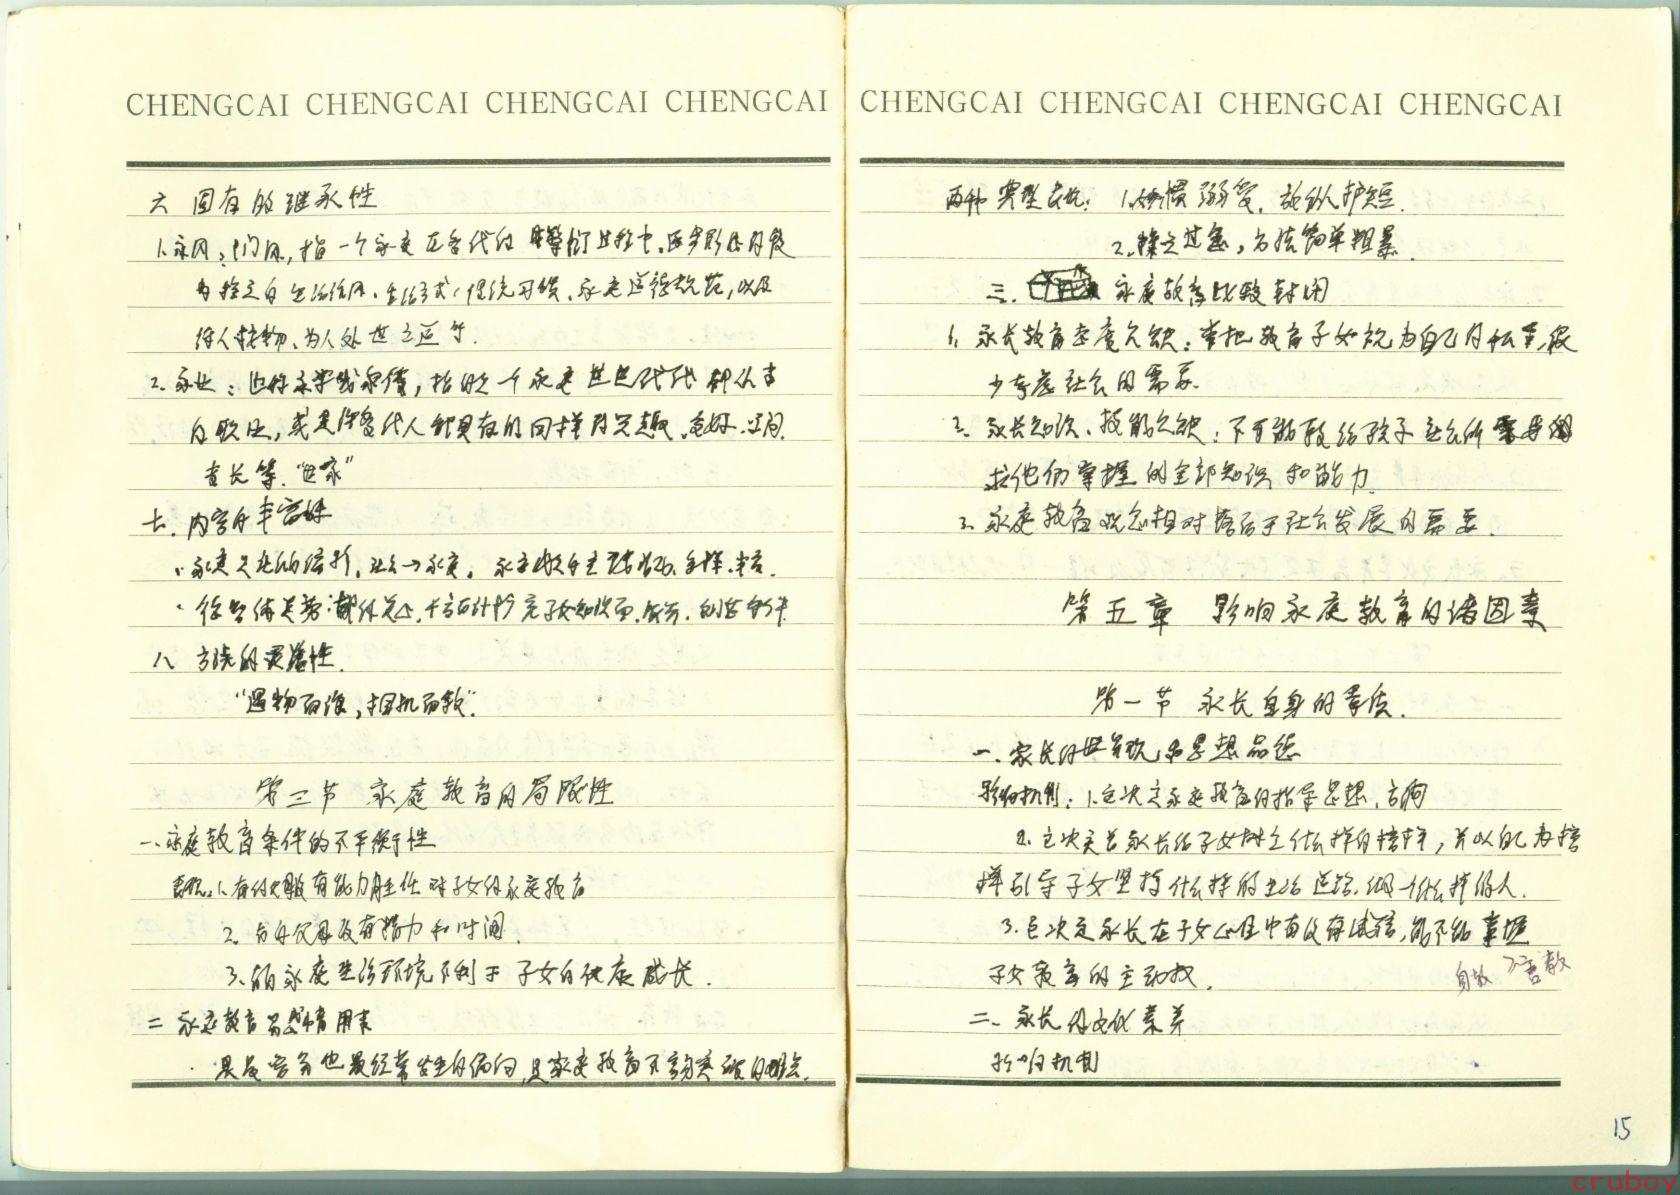 CHENGCAI CHENGCAI CHENGCAI CHENGCAI
六 固有的继承性
1.家风:门风,指一个家庭在各代的繁衍过程中,逐步形成的较
为稳定的生活作风、生活方式、传统习惯、家庭道德规范,以及
待人接物、为人处世之道等.
2.家业:也称家学或家传,指的是一个家庭世世代代都从事
的职业,或是许多代人都具有的同样的兴趣、爱好、
专长等."世家"
七.内容的丰富性
八 方法的灵活性.
"遇物而诲,相机而教".
第三节 家庭教育的局限性
一.家庭教育条件的不平衡性
1.有的父母没有能力胜任对子女的家庭教育
2.有的父母没有精力和时间.
3.的家庭生活环境不利于子女的健康成长.
二 家庭教育易感情用事
CHENGCAI CHENGCAI CHENGCAI CHENGCAI
两种典型表现: 1.娇惯溺爱,放纵护短.
2.操之过急,方法简单粗暴.
三. 家庭教育比较封闭
1.家长教育态度欠缺:常把教育子女视为自己的私事,很
少考虑社会的需要.
2.家长知识、技能欠缺:不可能教给孩子社会所需要
求他们掌握的全部知识和能力.
3.家庭教育观念相对落后于社会发展的需要.
第五章 影响家庭教育的诸因素
第一节 家长自身的素质.
一.家长的世界观与思想品德
影响机制:1.它决定家庭教育的指导思想、方向
2.它决定着家长给子女树立什么样的榜样,并以自己为榜
样引导子女坚持什么样的生活道路,做个什么样的人.
3.它决定家长在子女心目中有没有威信,能不能掌握
子女教育的主动权.
身教 言教
二.家长的文化素养
影响机制
15
cruboy